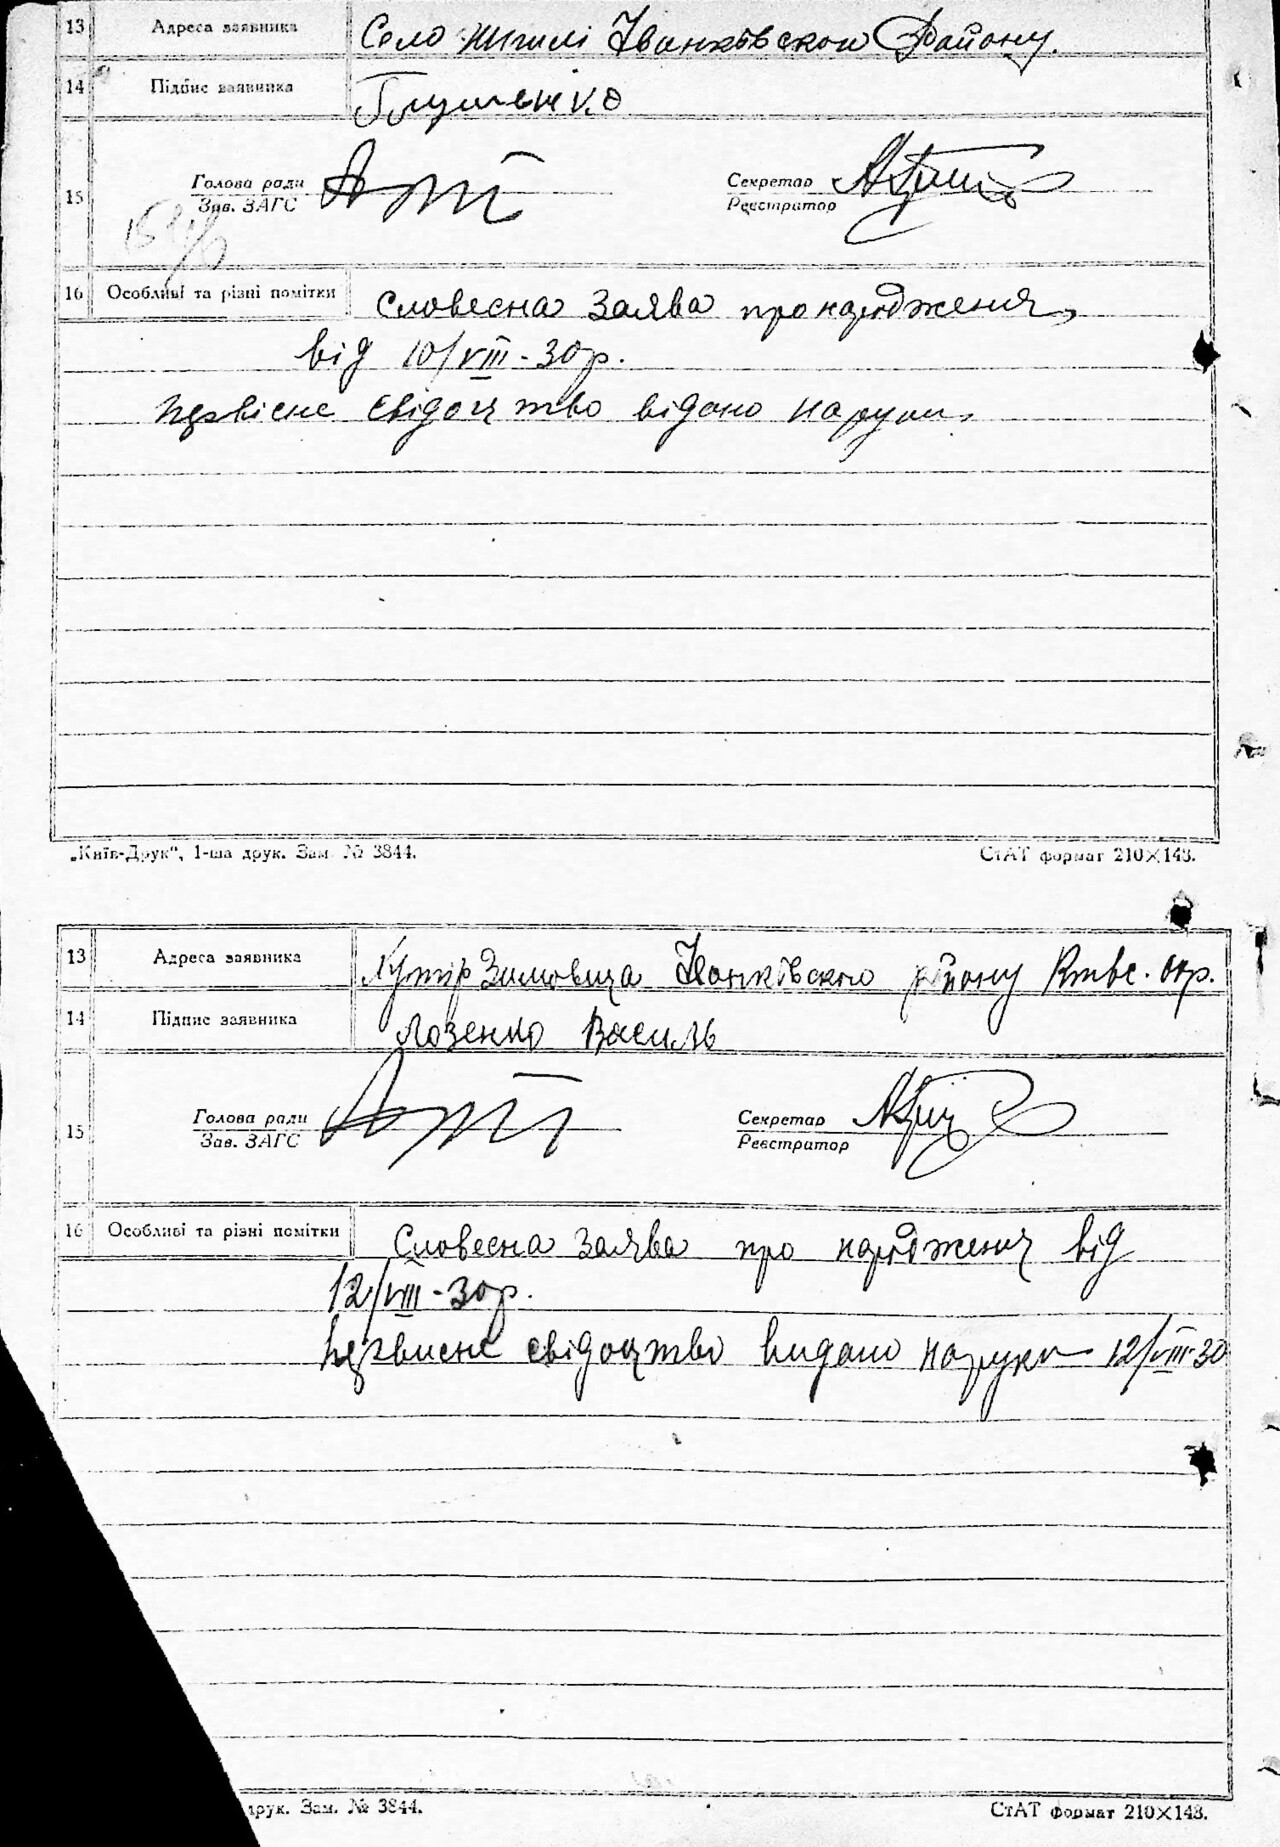 13 Адреса заявника Село Жмилі Іванківскою Району.
14 Підпис заявника Глушенко
15 Голова ради Секретар
Зав. ЗАГС Реєстратор
16 Особливі та різні помітки Словесна заява про народження,
від 10/VIII - 30р.
первісне свідоцтво відано наруки.
„Київ-Друк“, 1-ша друк. Зам. № 3844. СтАТ формат 210×148.
13 Адреса заявника Хутір Зимовища Іванківскою району окр.
14 Підпис заявника Лозенко Василь
15 Голова ради Секретар
Зав. ЗАГС Реєстратор
16 Особливі та різні помітки Словесна заява про народження від
12/VIII - 30р.
первисне свідоцтво видано наруки 12/VIII-30
друк. Зам. № 3844. СтАТ формат 210×148.